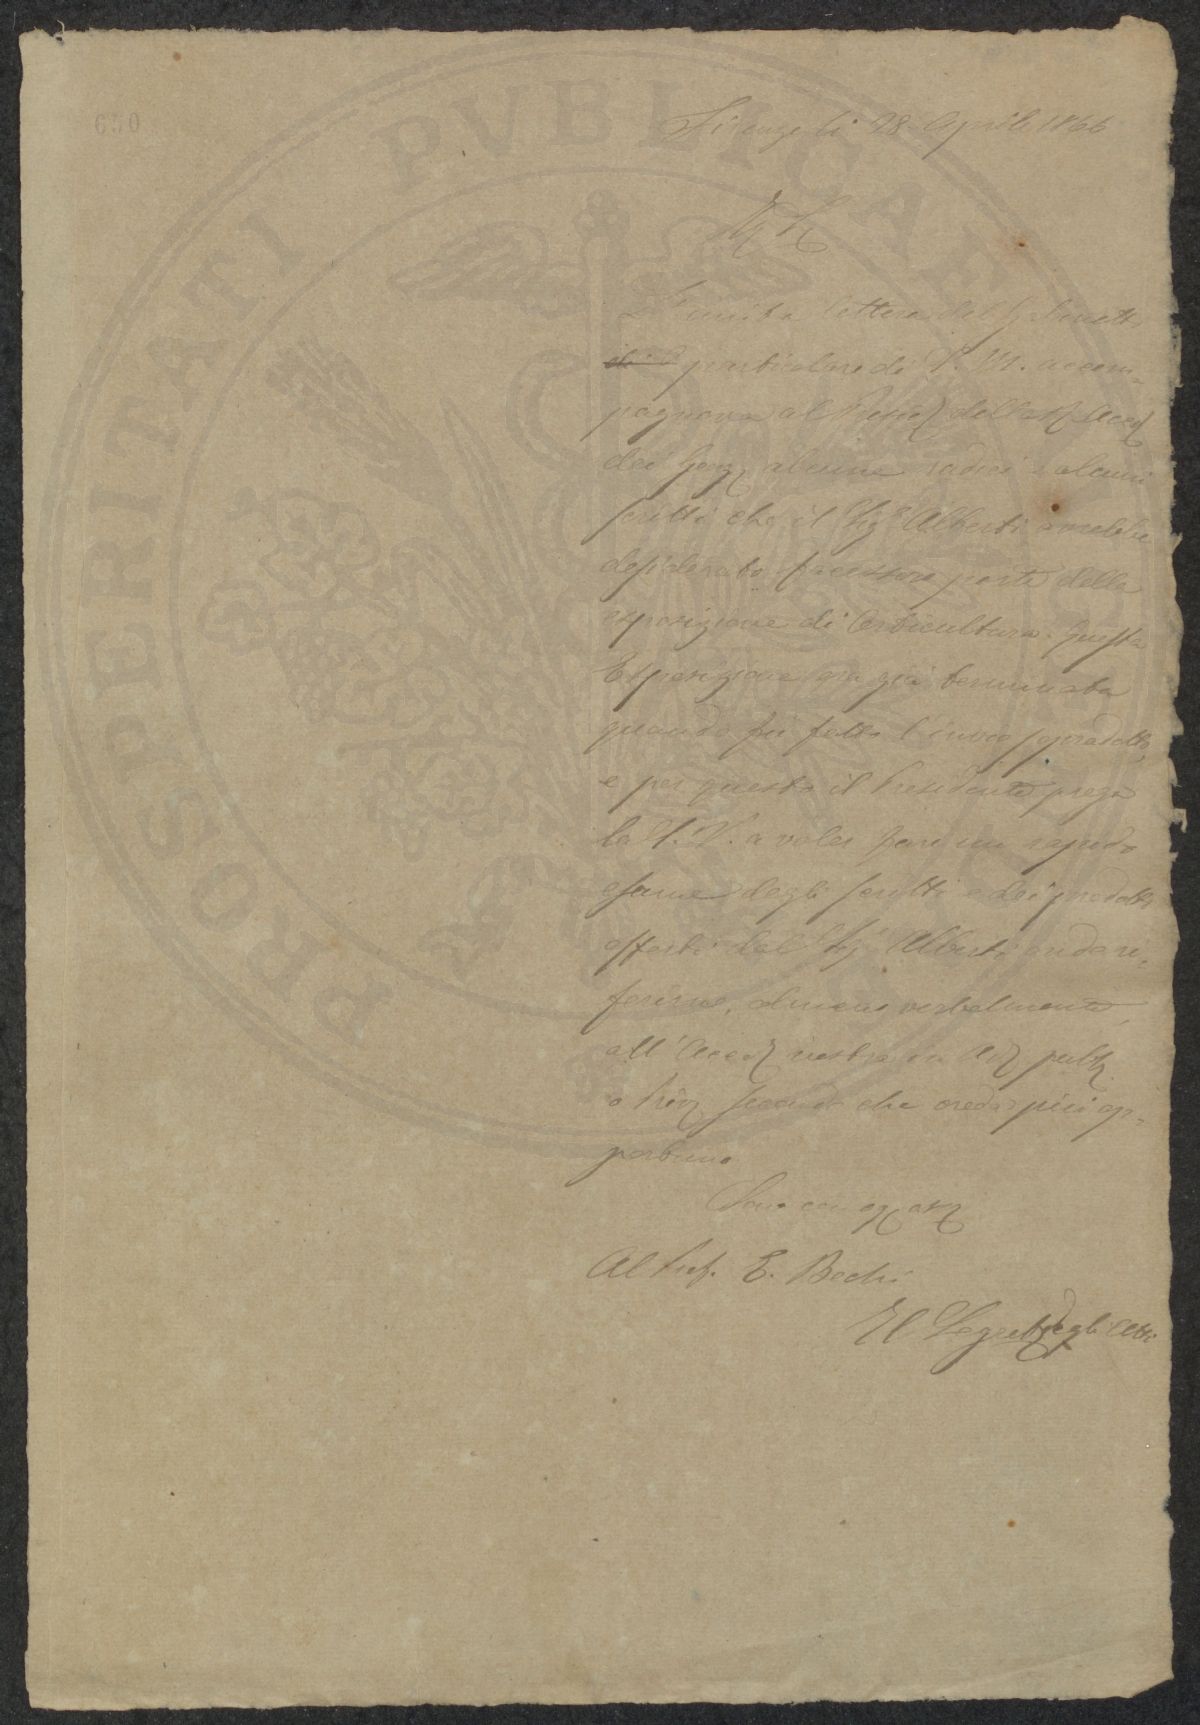 650
PROSPERITATI PVBLICAE
Firenze li 28 Aprile 1866
L'unita lettera del Gabinetto
di particolare di S. M. accom-
pagnava al Presid dell'Acad
dei Georg alcune radici e alcuni
scritti che il Sig Alberti avrebbe
desiderato facessero parte della
esposizione di Orticultura. Questa
Esposizione era già terminata
quando fu fatto l'invio sopradetto,
e per questo il Presidente prega
la S. V. a voler fare un rapido
esame degli scritti e dei prodotti
offerti dal Sig Alberti onde re-
ferirne, almeno verbalmente,
all'Accad nostra in Ad pubb
o priv secondo che creda più op-
portuno
Sono con
Al Prof. E. Bechi
Il Segret degli Atti